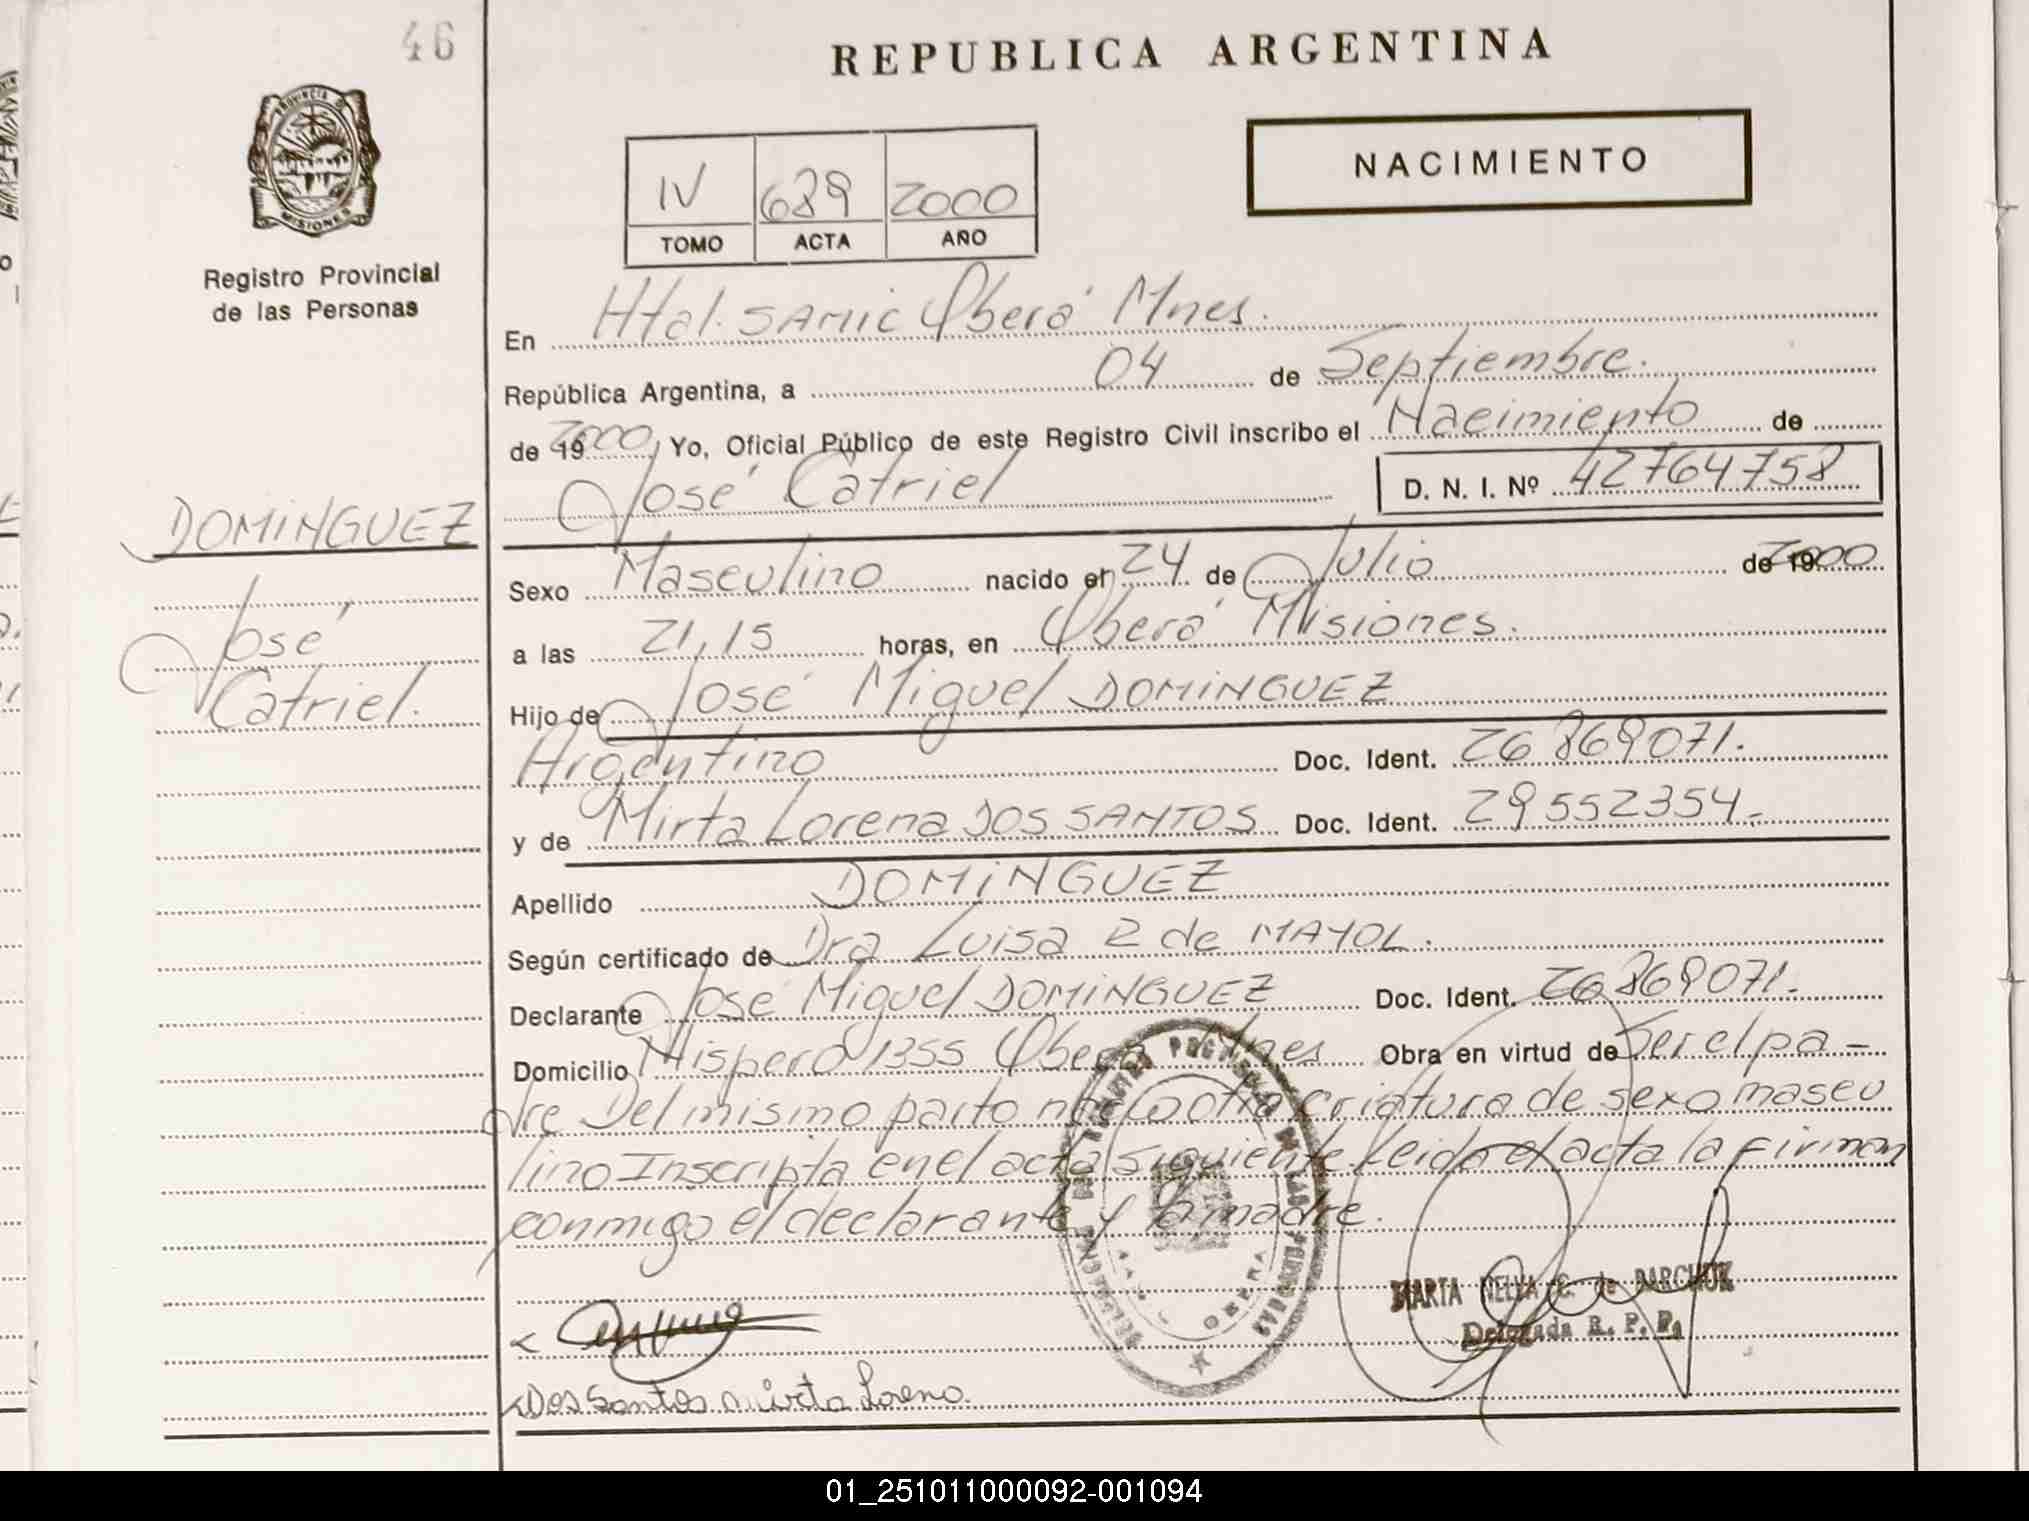 46
REPUBLICA ARGENTINA
PROVINCIA DE
MISIONES
Registro Provincial
de las Personas
NACIMIENTO
IV 689 2000
TOMO ACTA AÑO
En Htal. SAMIC Oberá Mnes.
República Argentina, a 04 de Septiembre.
de 19 2000, Yo, Oficial Público de este Registro Civil inscribo el Nacimiento de
José Catriel D. N. I. Nº 42764758
DOMINGUEZ
José
Catriel.
Sexo Masculino nacido el 24 de Julio de 19 2000
a las 21,15 horas, en Oberá Misiones.
Hijo de José Miguel DOMINGUEZ
Argentino Doc. Ident. 26869071.
y de Mirta Lorena DOS SANTOS Doc. Ident. 29552354.-
Apellido DOMINGUEZ
Según certificado de Dra Luisa Z de MAYOL.
Declarante José Miguel DOMINGUEZ Doc. Ident. 26869071.
Domicilio Nispero 1355 Oberá Mnes Obra en virtud de Ser el pa-
dre Del mismo parto nació otra criatura de sexo mascu
lino Inscripta en el acta siguiente Leida el acta la firman
conmigo el declarante y la madre.
MARTA NELVA C. de BARCHUK
Delegada R. P. P.
Dos Santos mirta Lorena.
01_251011000092-001094